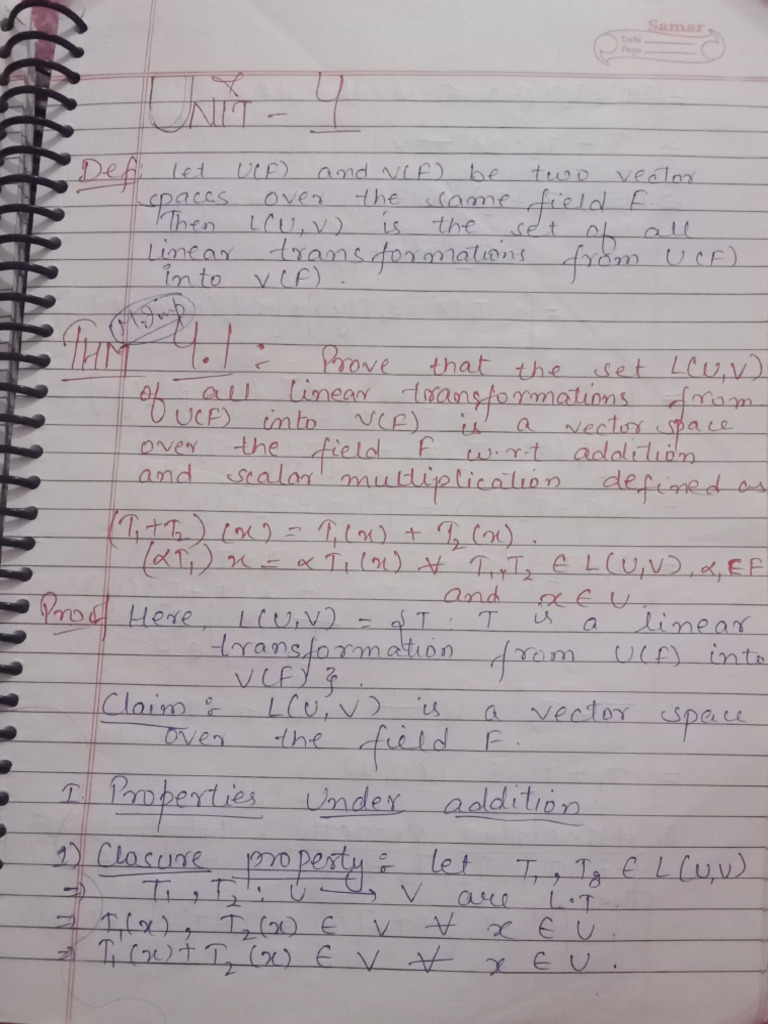 Samar
Date
Page
UNIT - 4
Def: Let U(F) and V(F) be two vector
spaces over the same field F
Then L(U,V) is the set of all
linear transformations from U(F)
into V(F).
M.Imp
THM 4.1 : Prove that the set L(U,V)
of all linear transformations from
U(F) into V(F) is a vector space
over the field F w.r.t addition
and scalar multiplication defined as
(T₁+T₂) (x) = T₁(x) + T₂(x).
(αT₁) x = α T₁(x) ∀ T₁,T₂ ∈ L(U,V), α, ∈ F
and x ∈ U.
Proof Here, L(U,V) = {T. T is a linear
transformation from U(F) into
V(F) }.
Claim : L(U,V) is a vector space
over the field F.
I. Properties under addition
1) Closure property : Let T₁, T₈ ∈ L(U,V)
⇒ T₁, T₂ : U → V are L.T
⇒ T₁(x), T₂(x) ∈ V ∀ x ∈ U.
⇒ T₁(x) + T₂(x) ∈ V ∀ x ∈ U.